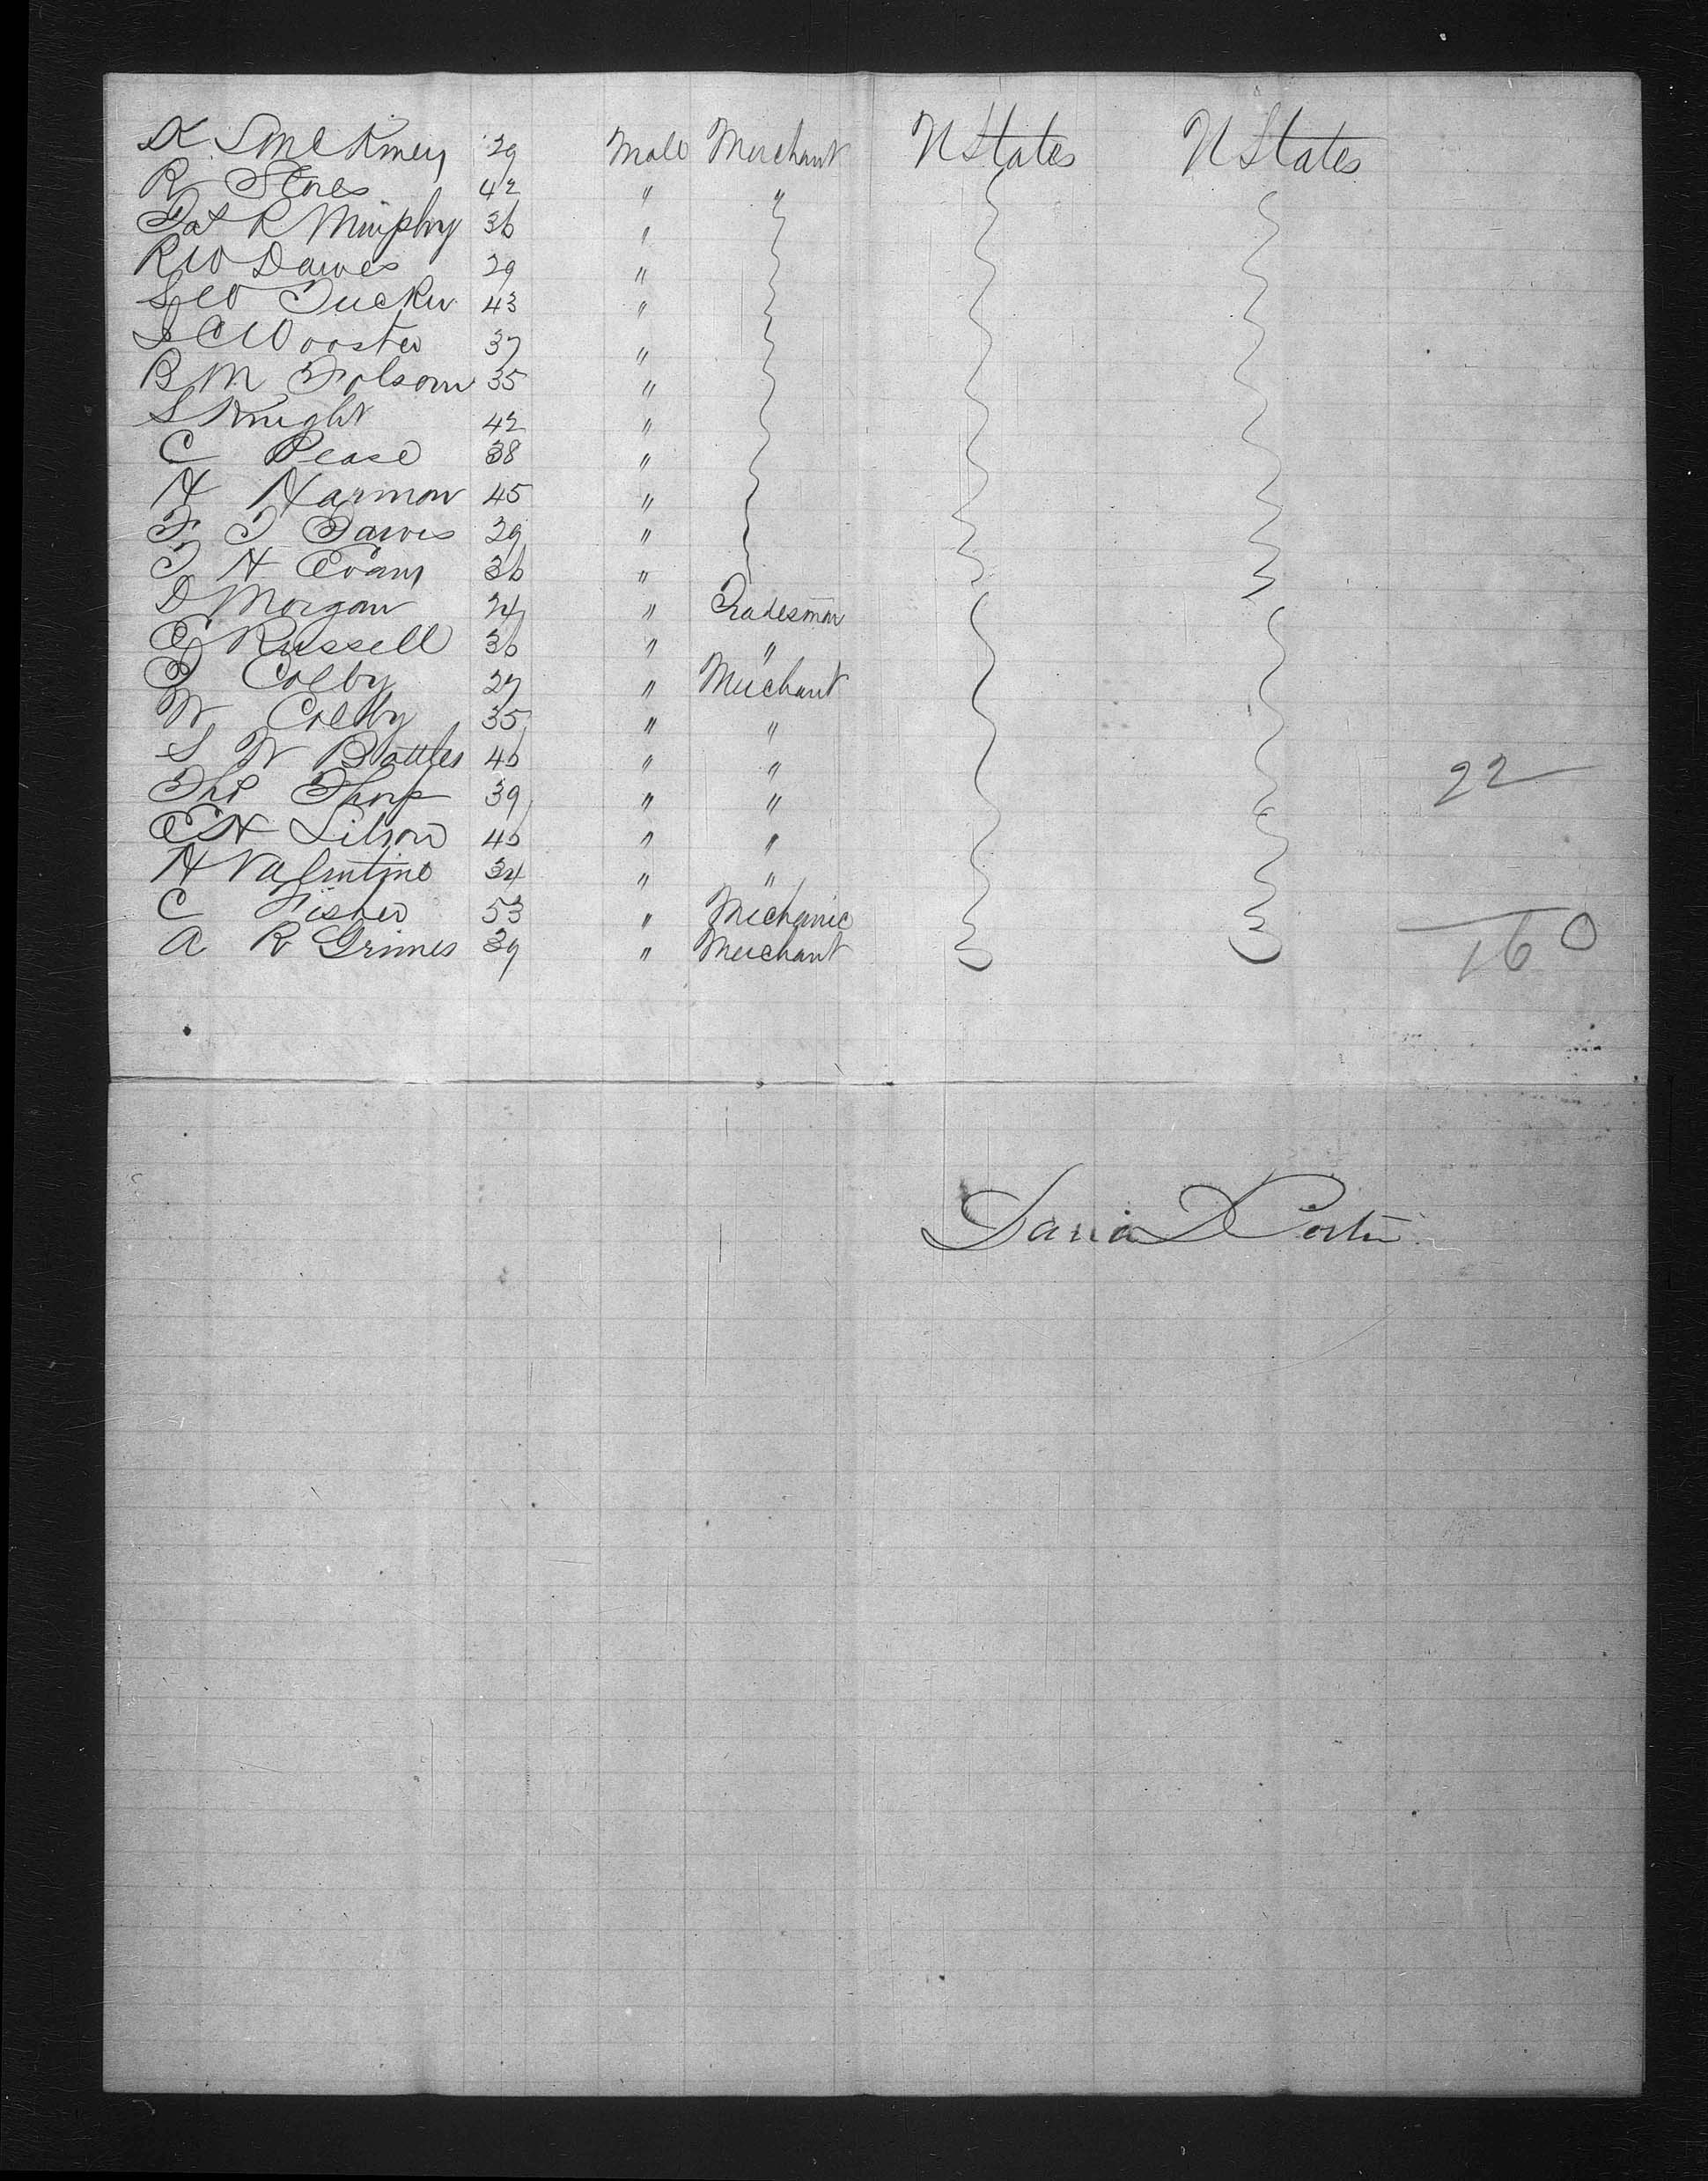 29 Male Merchant U States U States
R 42 " "
Pat R Murphy 36 "
R W Dawes 29 "
S W Tucker 43 "
S C Wooster 37 "
B M Folsom 35 "
S Knight 42 "
C Pease 38 "
H Harmon 45 "
F T 29 "
T H Evans 36 "
D Morgan 24 " Tradesman
E Russell 36 " "
Colby 27 " Merchant
W Colby 35 " "
S W Battles 46 " " 22
Tho Thorp 39 " "
E H 46 " "
H Valentine 34 " "
C Fisher 53 " Mechanic
A R Grimes 39 " Merchant 160
David D Porter